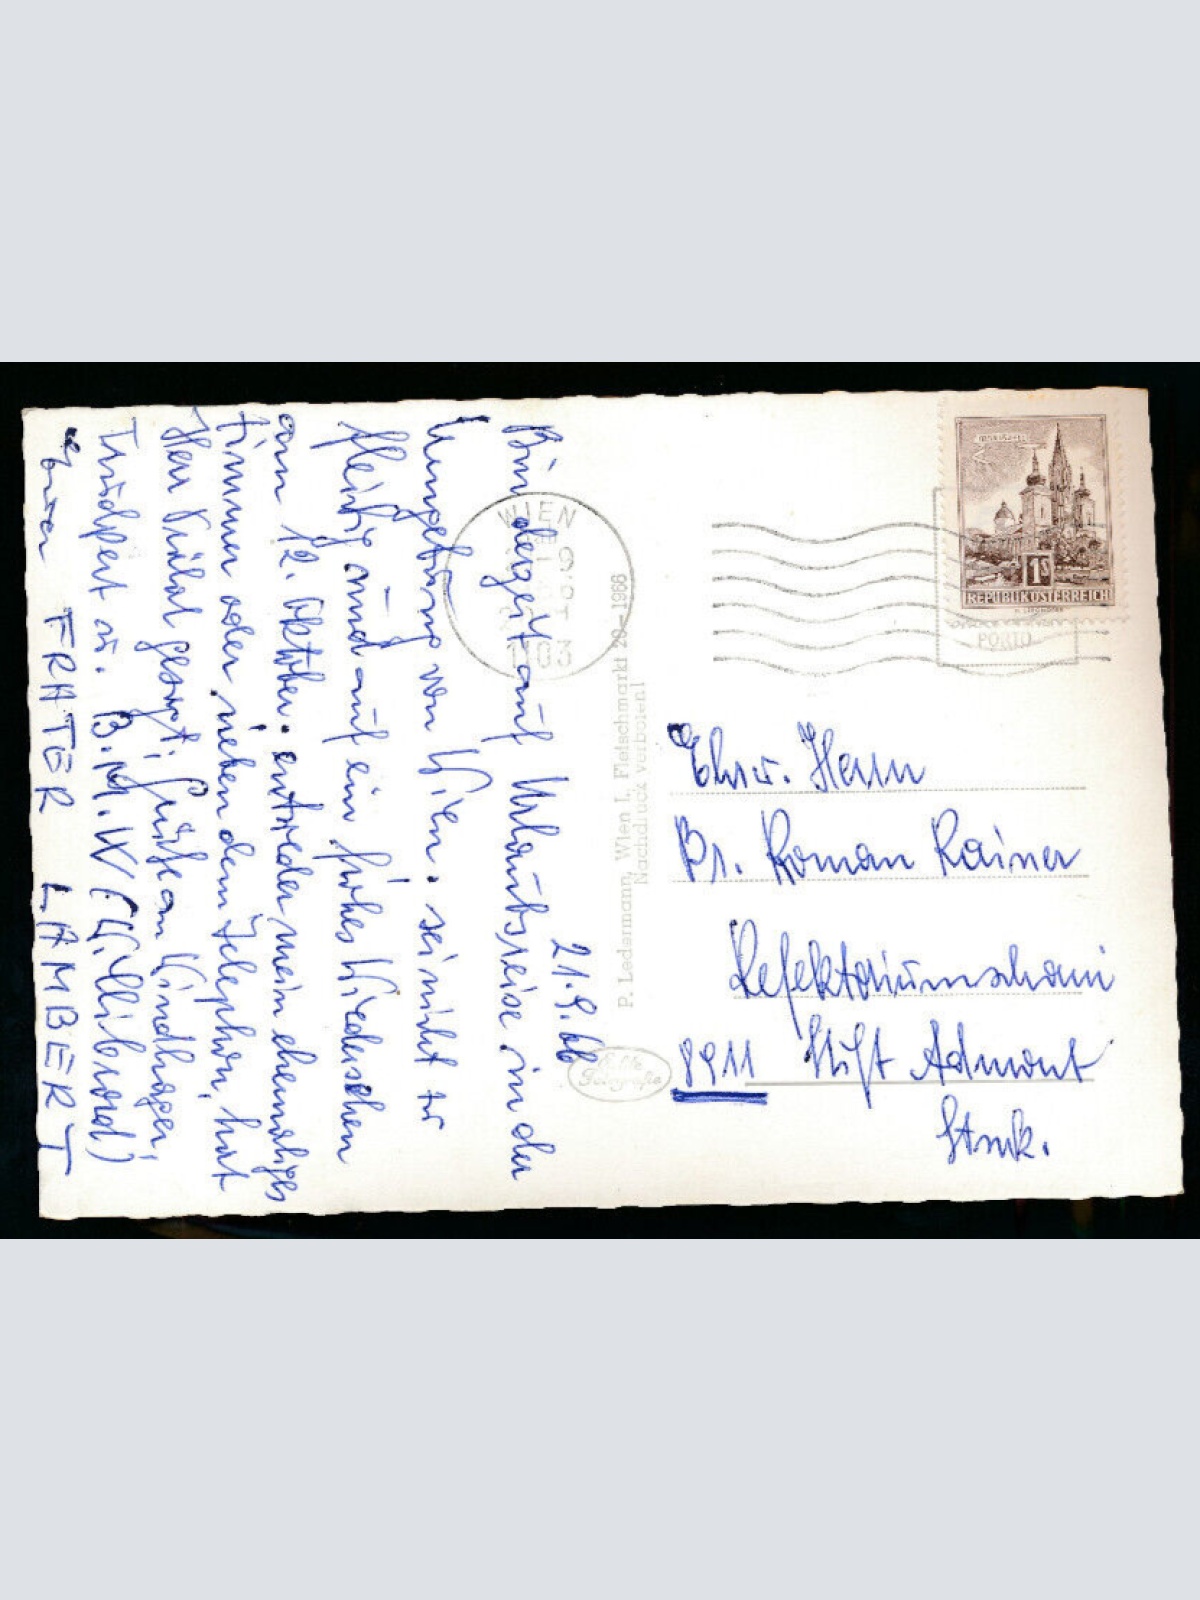 21.9.66
Bin derzeit auf Urlaubsreise in der
Umgebung von Wien. sei nicht zu
fleißig und auf ein frohes Wiedersehen
am 12. Oktober. entweder mein ehemaliges
Zimmer oder neben dem Telephon, hat
Herr gesagt; Grüße an
Trudpert u. B.M.W. (Willibrord)
FRATER LAMBERT
WIEN
1103
P. Ledermann, Wien I., Fleischmarkt 20 – 1966
Nachdruck verboten!
MARIAZELL
1S
REPUBLIK ÖSTERREICH
PORTO
Ehrw. Herrn
Br. Roman Rainer
8911 Stift Admont
Stmk.